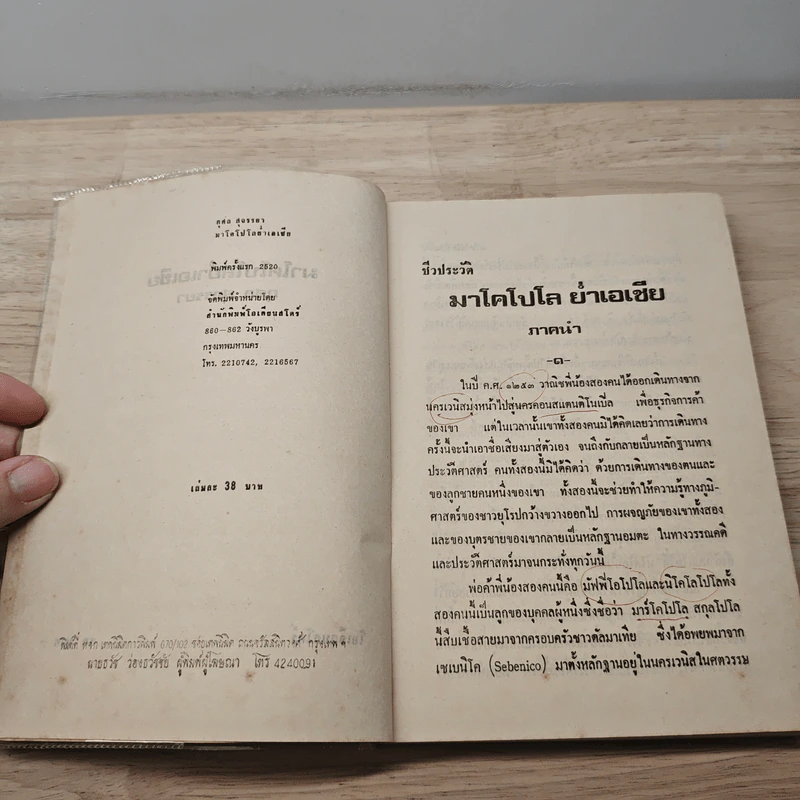 กุศล สุจรรยา
มาโคโปโลย่ำเอเซีย
พิมพ์ครั้งแรก 2520
จัดพิมพ์จำหน่ายโดย
สำนักพิมพ์โอเดียนสโตร์
860-862 วังบูรพา
กรุงเทพมหานคร
โทร. 2210742, 2216567
เล่มละ 38 บาท
พิมพ์ที่ หจก เทคนิคการพิมพ์ 670/102 กรุงเทพ ฯ
นายธวัช ว่องธวัชชัย ผู้พิมพ์ผู้โฆษณา โทร 4240091
ชีวประวัติ
มาโคโปโล ย่ำเอเชีย
ภาคนำ
-๑-
ในปี ค.ศ. ๑๒๕๓ วาณิชพี่น้องสองคนได้ออกเดินทางจาก
นครเวนิสมุ่งหน้าไปสู่นครคอนสแตนติโนเปิ้ล เพื่อธุรกิจการค้า
ของเขา แต่ในเวลานั้นเขาทั้งสองคนมิได้คิดเลยว่าการเดินทาง
ครั้งนี้จะนำเอาชื่อเสียงมาสู่ตัวเอง จนถึงกับกลายเป็นหลักฐานทาง
ประวัติศาสตร์ คนทั้งสองนี้มิได้คิดว่า ด้วยการเดินทางของตนและ
ของลูกชายคนหนึ่งของเขา ทั้งสองนี้จะช่วยทำให้ความรู้ทางภูมิ-
ศาสตร์ของชาวยุโรปกว้างขวางออกไป การผจญภัยของเขาทั้งสอง
และของบุตรชายของเขากลายเป็นหลักฐานอมตะ ในทางวรรณคดี
และประวัติศาสตร์มาจนกระทั่งทุกวันนี้
พ่อค้าพี่น้องสองคนนี้คือ มัฟฟีโอโปโลและนิโคโลโปโลทั้ง
สองคนนี้เป็นลูกของบุคคลผู้หนึ่งซึ่งชื่อว่า มาร์โคโปโล สกุลโปโล
นี้สืบเชื้อสายมาจากครอบครัวชาวดัลมาเทีย ซึ่งได้อพยพมาจาก
เซเบนิโค (Sebenico) มาตั้งหลักฐานอยู่ในนครเวนิสในศตวรรษ